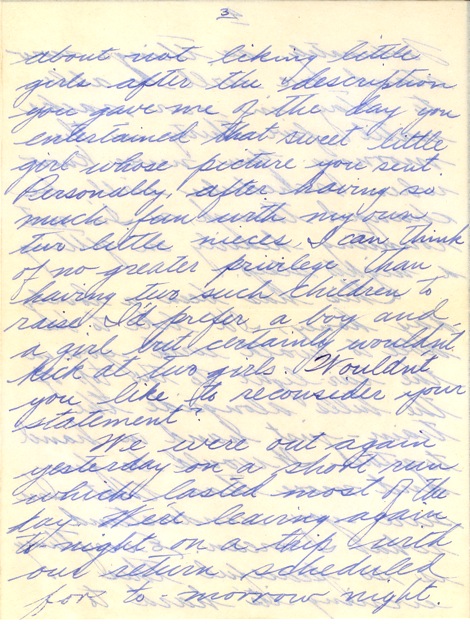 3
about not liking little
girls after the description
you gave me of the day you
entertained that sweet little
girl whose picture you sent.
Personally, after having so
much fun with my own
two little nieces, I can think
of no greater privilege than
having two such children to
raise. I'd prefer a boy and
a girl but certainly wouldn't
kick at two girls. Wouldn't
you like to reconsider your
statement?
We were out again
yesterday on a short run
which lasted most of the
day. We're leaving again
to-night on a trip with
our return scheduled
for to-morrow night.